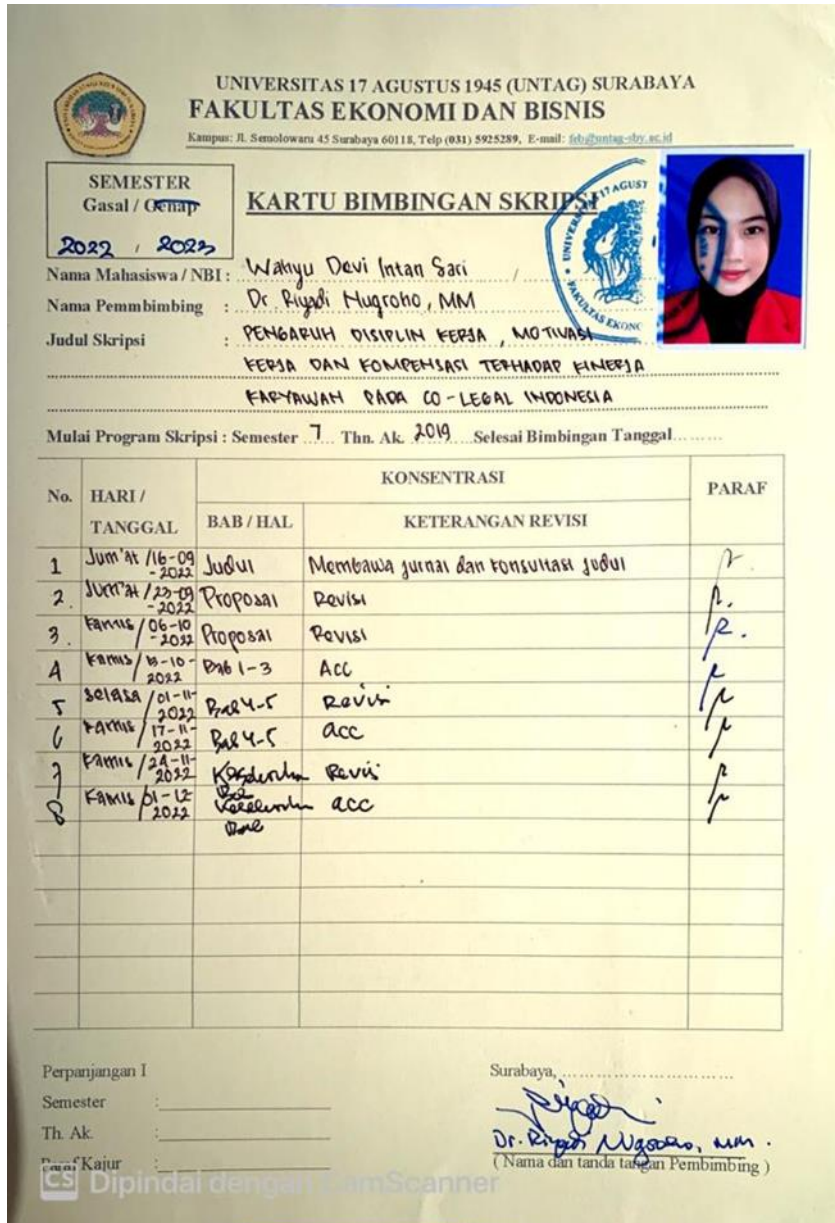 UNIVERSITAS 17 AGUSTUS 1945 (UNTAG) SURABAYA
FAKULTAS EKONOMI DAN BISNIS
Kampus: Jl. Semolowaru 45 Surabaya 60118, Telp (031) 5925289, E-mail: feb@untag-sby.ac.id
SEMESTER
Gasal / Genap
2022 / 2023
KARTU BIMBINGAN SKRIPSI
Nama Mahasiswa / NBI : Wahyu Devi Intan Sari /
Nama Pemmbimbing : Dr. Riyadi Nugroho, MM
Judul Skripsi : PENGARUH DISIPLIN KERJA, MOTIVASI
KERJA DAN KOMPENSASI TERHADAP KINERJA
KARYAWAN PADA CO-LEGAL INDONESIA
Mulai Program Skripsi : Semester 7 Thn. Ak. 2019 Selesai Bimbingan Tanggal
No. HARI / TANGGAL KONSENTRASI PARAF
BAB / HAL KETERANGAN REVISI
1 Jum'at /16-09-2022 Judul Membawa jurnal dan konsultasi judul
2. Jum'at /23-09-2022 Proposal Revisi
3. Kamis /06-10-2022 Proposal Revisi
4 Kamis /13-10-2022 Bab 1-3 Acc
5 Selasa /01-11-2022 Bab 4-5 Revisi
6 Kamis /17-11-2022 Bab 4-5 acc
7 Kamis /24-11-2022 Keseluruhan Bab Revisi
8 Kamis /01-12-2022 Keseluruhan Bab acc
Perpanjangan I
Semester :
Th. Ak. :
Paraf Kajur :
Surabaya,
Dr. Riyadi Nugroho, MM.
( Nama dan tanda tangan Pembimbing )
CS Dipindai dengan CamScanner